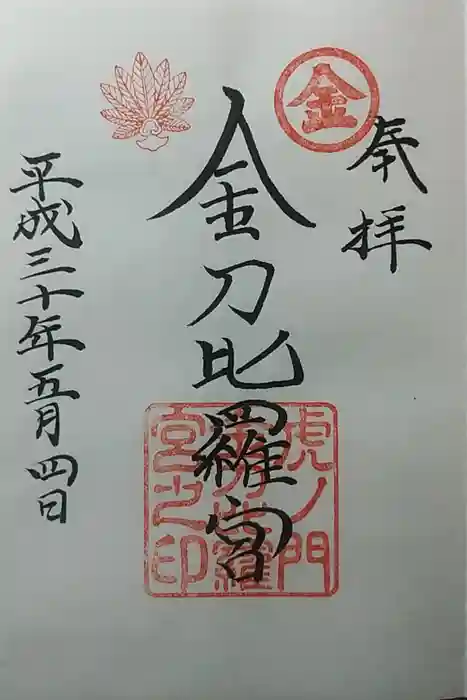 奉拝
金
金刀比羅宮
虎ノ門
金刀比羅
宮之印
平成三十年五月四日